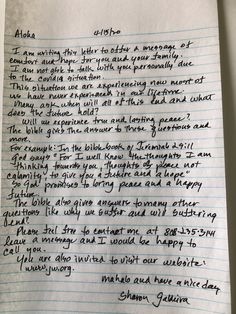 Aloha 4/15/20
I am writing this letter to offer a message of
comfort and hope for you and your family.
I am not able to talk with you personally due
to the covid19 situation.
This situation we are experiencing now most
of us have never experienced in our lifetime.
Many ask when will all of this end and what
does the future hold?
Will we experience true and lasting peace?
The bible gives the answer to these questions and
more.
For example: In the bible book of Jeremiah 29:11
God says "For I well know the thoughts I am
"thinking towards you, thoughts of peace not
calamity", to give you a future and a hope"
So God promises to bring peace and a happy
future.
The bible also gives answers to many other
questions like why we suffer and will suffering
end?
Please feel free to contact me at
leave a message and I would be happy to
call you.
You are also invited to visit our website:
www.jw.org.
mahalo and have a nice day
Sharon